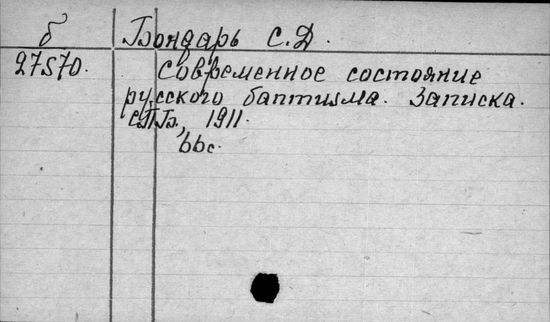 б Бондарь С.Д.
27570. Современное состояние
русского баптизма. Записка.
СПБ, 1911.
bbc.